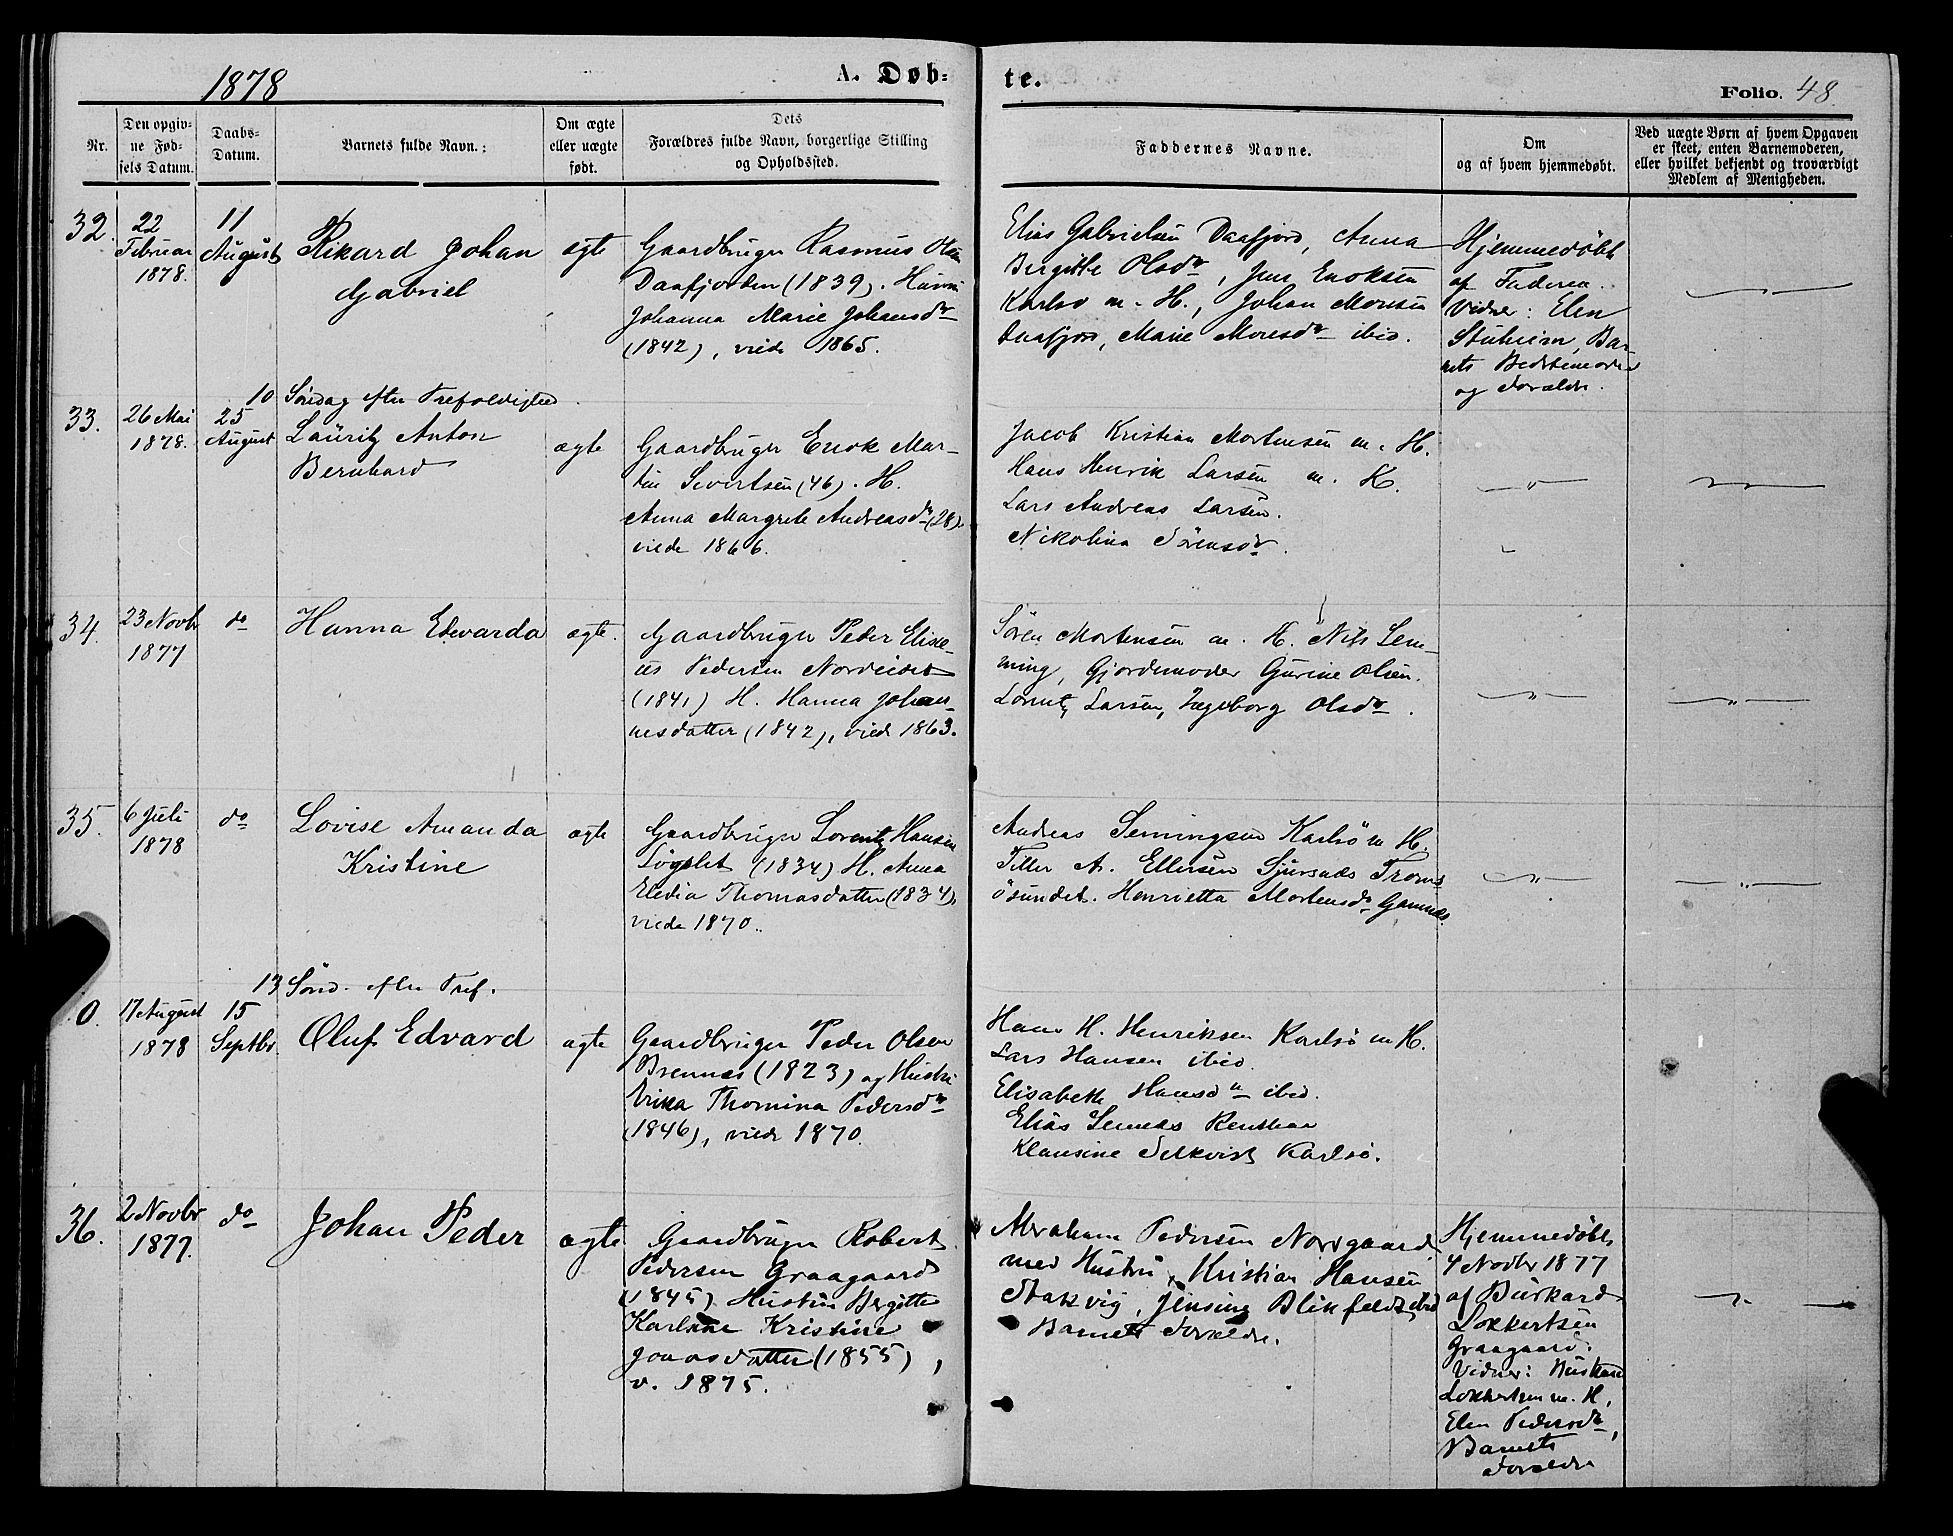 1878
A. Døb-
te.
Folio. 48.
Nr.
Den opgiv-
ne Fød-
sels Datum.
Daabs-
Datum.
Barnets fulde Navn.
Om ægte
eller uægte
født.
Dets
Forældres fulde Navn, borgerlige Stilling
og Opholdssted.
Faddernes Navne.
Om
og af hvem hjemmedøbt.
Ved uægte Børn af hvem Opgaven
er skeet, enten Barnemoderen,
eller hvilket bekjendt og troværdigt
Medlem af Menigheden.
32.
22
Februar
1878.
11
August
Rikard Johan
Gabriel
ægte
Gaardbruger Rasmus Olsen
Daafjorden (1839). Hustru
Johanna Marie Johansdr
(1842), viede 1865.
Elias Gabrielsen Daafjord, Anna
Birgitte Olsdr, Jens Enoksen
Karlsø m. H., Johan Monsen
Daafjord, Marie Monsdr ibid.
Hjemmedøbt
af Faderen.
Vidner: Elen
Barnets Bedstemoder
og Forældre.
10 Søndag efter Trefoldighed.
33.
26 Mai
1878.
25
August
Lauritz Anton
Bernhard
ægte
Gaardbruger Enok Mar-
tin Sivertsen (46). H.
Anna Margrete Andreasdr (28).
viede 1866.
Jacob Kristian Mortensen m. H.
Hans Henrik Larsen m. H.
Lars Andreas Larsen.
Nikolina Sörensdr.
34.
23 Novbr
1877
do
Hanna Edvarda
ægte.
Gaardbruger Peder Elise-
us Pedersen Nordeidet
(1841) H. Hanna Johan-
nesdatter (1842), viede 1863.
Sören Mortensen m. H. Nils Lem-
ming, Gjordemoder Gurine Olsen.
Lorents Larsen, Ingeborg Olsdr.
35.
6 Juli
1878
do
Lovise Amanda
Kristine
ægte
Gaardbruger Lorentz Hansen
(1834) H. Anna
Eledia Thomasdatter (1834),
viede 1870.
Andreas Semingsen Karlsö m H.
A. Ellersen Sjursnæs Troms-
ösundet. Henrietta Mortensdr Gamnæs.
13 Sönd. efter Tref.
0.
17 August
1878
15
Septbr
Oluf Edvard
ægte
Gaardbruger Peder Olsen
Brennæs (1823) og Hustru
Erika Thomina Pedersdr
(1846), viede 1870.
Hans H. Henriksen Karlsö m H.
Lars Hansen ibid.
Elisabeth Hansdr ibid.
Elias
Klausine Selkvist Karlsö.
36.
2 Novbr
1877.
do
Johan Peder
ægte
Gaardbruger Robert
Pedersen Graagaard
(1845). Hustru Bergitte
Karlene Kristine
Jonasdatter (1855),
v. 1875.
Abraham Pedersen Norgaard
med Hustru, Kristian Hansen
Stakvig, Jensine Blikfeldt, ibid
Barnets Forældre.
Hjemmedøbt
4 Novbr 1877
af Burkard
Lokkertsen
Graagaard.
Vidner: Burkard
Lokkertsen m. H,
Elen Pedersdr,
Barnets
Forældre